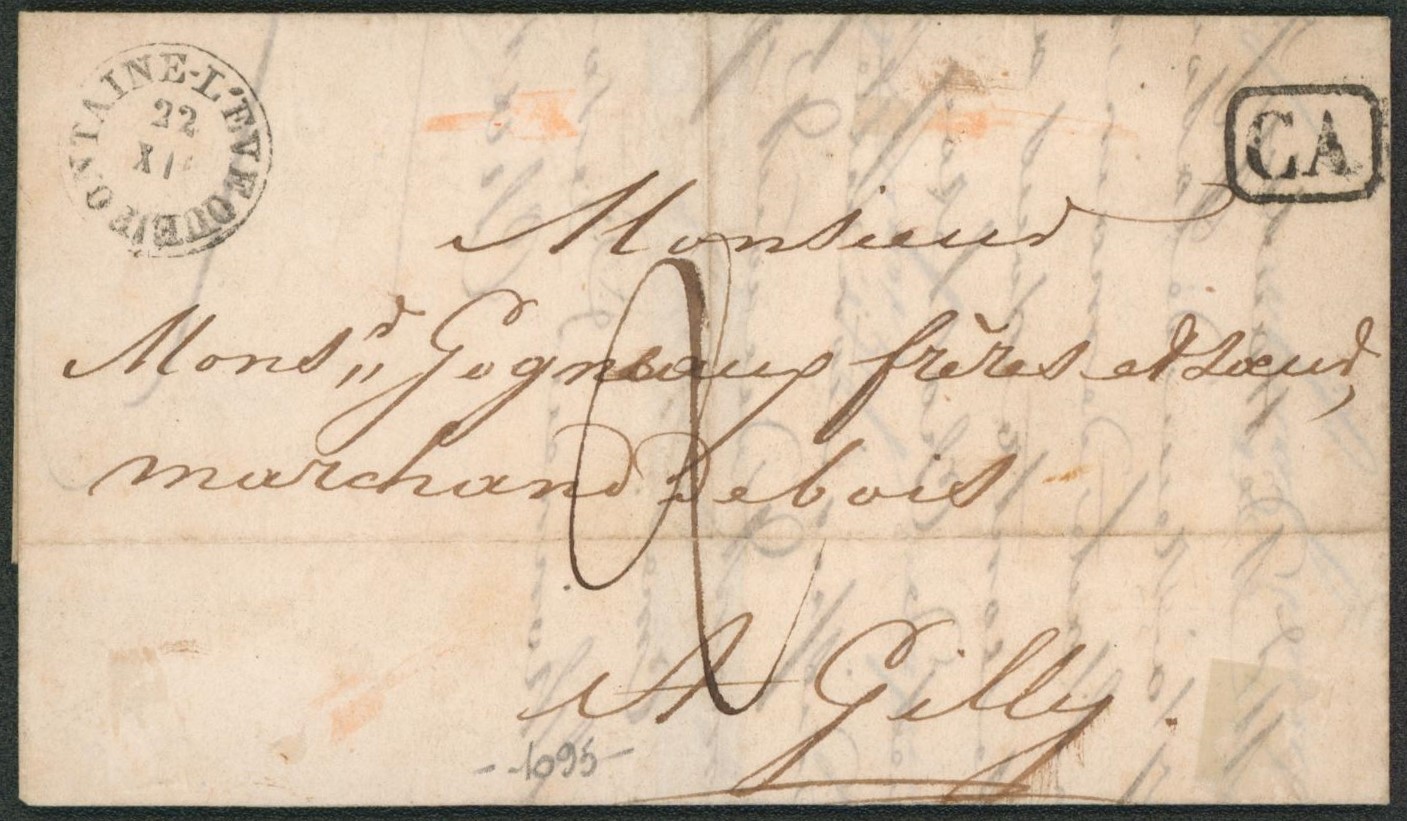 FONTAINE-L'EVEQUE
22
XI
CA
Monsieur
Mons.rd Gogneaux frères et sœur,
marchand de bois
2
A Gilly.
- 1095 -